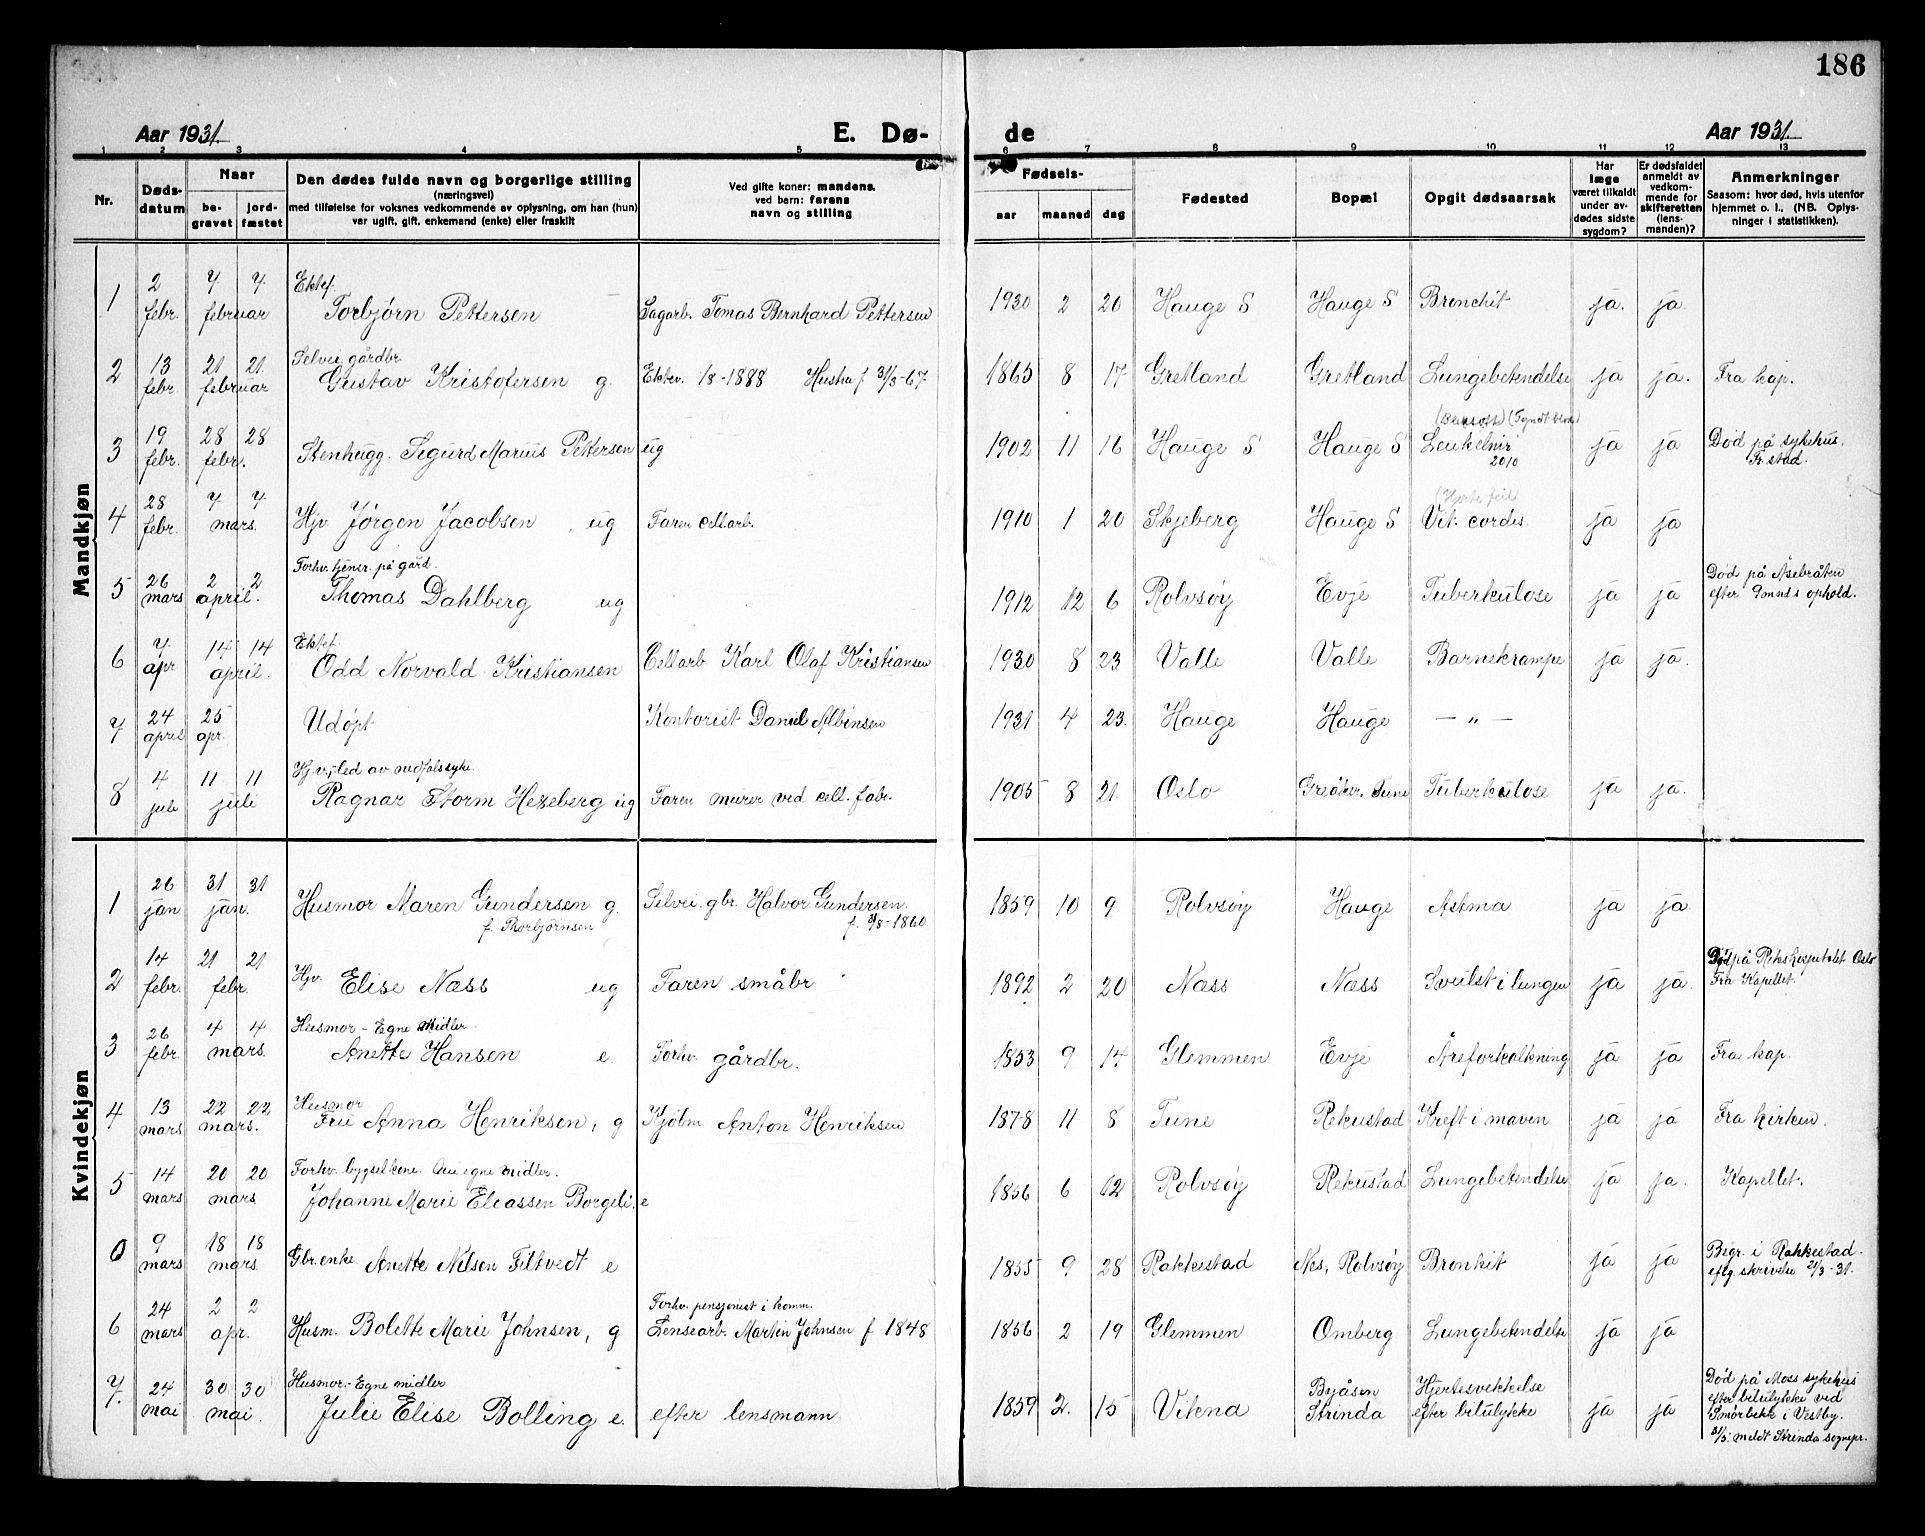 186
Aar 1931. E. Dø- de Aar 1931.
1 2 3 4 5 6 7 8 9 10 11 12 13
Nr.
Døds-
datum
Naar
be-
gravet
jord-
fæstet
Den dødes fulde navn og borgerlige stilling
(næringsvei)
med tilføielse for voksnes vedkommende av oplysning, om han (hun)
var ugift, gift, enkemand (enke) eller fraskilt
Ved gifte koner: mandens,
ved barn: farens
navn og stilling
Fødsels-
aar maaned dag
Fødested
Bopæl
Opgit dødsaarsak
Har
læge
været tilkaldt
under av-
dødes sidste
sygdom?
Er dødsfaldet
anmeldt av
vedkom-
mende for
skifteretten
(lens-
manden)?
Anmerkninger
Saasom: hvor død, hvis utenfor
hjemmet o. l., (NB. Oplys-
ninger i statistikken).
Mandkjøn
1 2 febr. 7 7 februar Ektef. Torbjørn Pettersen Sagarb. Tomas Bernhard Pettersen 1930 2 20 Hauge S Hauge S Bronchit ja. ja.
2 13 febr. 21 21. februar Selvei. gårdbr. Gustav Kristofersen g. Ektev. 18-1888 Hustru f 31/3-67. 1865 8 17 Gretland Gretland Lungebetendelse ja ja. Fra kap.
3 19 febr. 28 28 febr. Stenhugg. Sigurd Marius Pettersen ug 1902 11 16 Hauge S Hauge S Leukelnir 2010 ja ja Død på sykehus. Fr.stad.
4 28 febr. 7 7 mars. Hjv. Jørgen Jacobsen, ug Faren cellarb. 1910 1 20 Skjeberg Hauge S (Hjertefeil) Vit. cordis. ja ja
5 26 mars 2 2 april. Forhv. tjener på gård. Thomas Dahlberg ug 1912 12 6 Rolvsøy Evje Tuberkulose ja ja Død på Åsebråten efter 9 mnds ophold.
6 7. apr 14 14 april. Ektef. Odd Norvald Kristiansen Cellarb Karl Olaf Kristiansen 1930 8 23 Valle Valle Barnekrampe ja ja.
7 24 april 25 apr. Udøpt Kontorist Daniel Albinsen 1931 4 23. Hauge Hauge — „ —
8 4 juli 11 11 juli Hjv., led av nedfalssyke. Ragnar Storm Hezeberg ug Faren murer ved cell. fabr. 1905 8 21. Oslo Greåker. Tune Tuberkulose ja ja.
Kvindekjøn
1 26 jan 31 31 jan. Husmor Maren Gundersen g. f. Thorbjørnsen Selvei. gbr. Halvor Gundersen. f. 31/8-1860 1859 10 9 Rolvsøy Hauge Astma ja ja.
2 14 febr. 21 21 febr. Hjv. Elise Næss ug Faren småbr 1892 2 20 Næss Næss Svulst i lungen ja ja. Død på Rikshospitalet Oslo Fra Kapellet.
3 26 febr. 4 4 mars. Husmor - Egne midler. Anette Hansen e. Forhv. gårdbr. 1853 9 14. Glemmen Evje Åreforkalkning ja ja Fra kap.
4 13 mars 22 22 mars. Husmor Fru Anna Henriksen, g Kjølm. Anton Henriksen 1878 11 8 Tune Rekustad Kreft i maven ja ja Fra kirken.
5 14 mars 20 20 mars Forhv. bygselkone. egne midler. Johanne Marie Eliassen Borgeli. e 1856 6 12 Rolvsøy Rekustad Lungebetendelse ja ja. Kapellet.
0 9 mars 18 18 mars Gbr.enke Anette Nilsen Filtvedt e 1855 9 28 Rakkestad Nes, Rolvsøy Bronkit ja ja Begr. i Rakkestad. eftg. skrivelse 21/3-31.
6 24 mars 2 2 apr. Husm. Bolette Marie Johnsen, g Forhv. pensjonist i komm. Lensearb. Martin Johnsen f 1848 1856 2 19 Glemmen Omberg Lungebetendelse ja ja
7. 24 mai 30 30 mai. Husmor. - Egne midler Julie Elise Bolling e. efter lensmann 1859 2. 15 Vikna Byåsen Strinda Hjertesvekkelse efter bilulykke ja ja Død på Moss sykehus efter bilulykke ved Smørbekk i Vestby. 31/5. meldt Strinda sognepr.